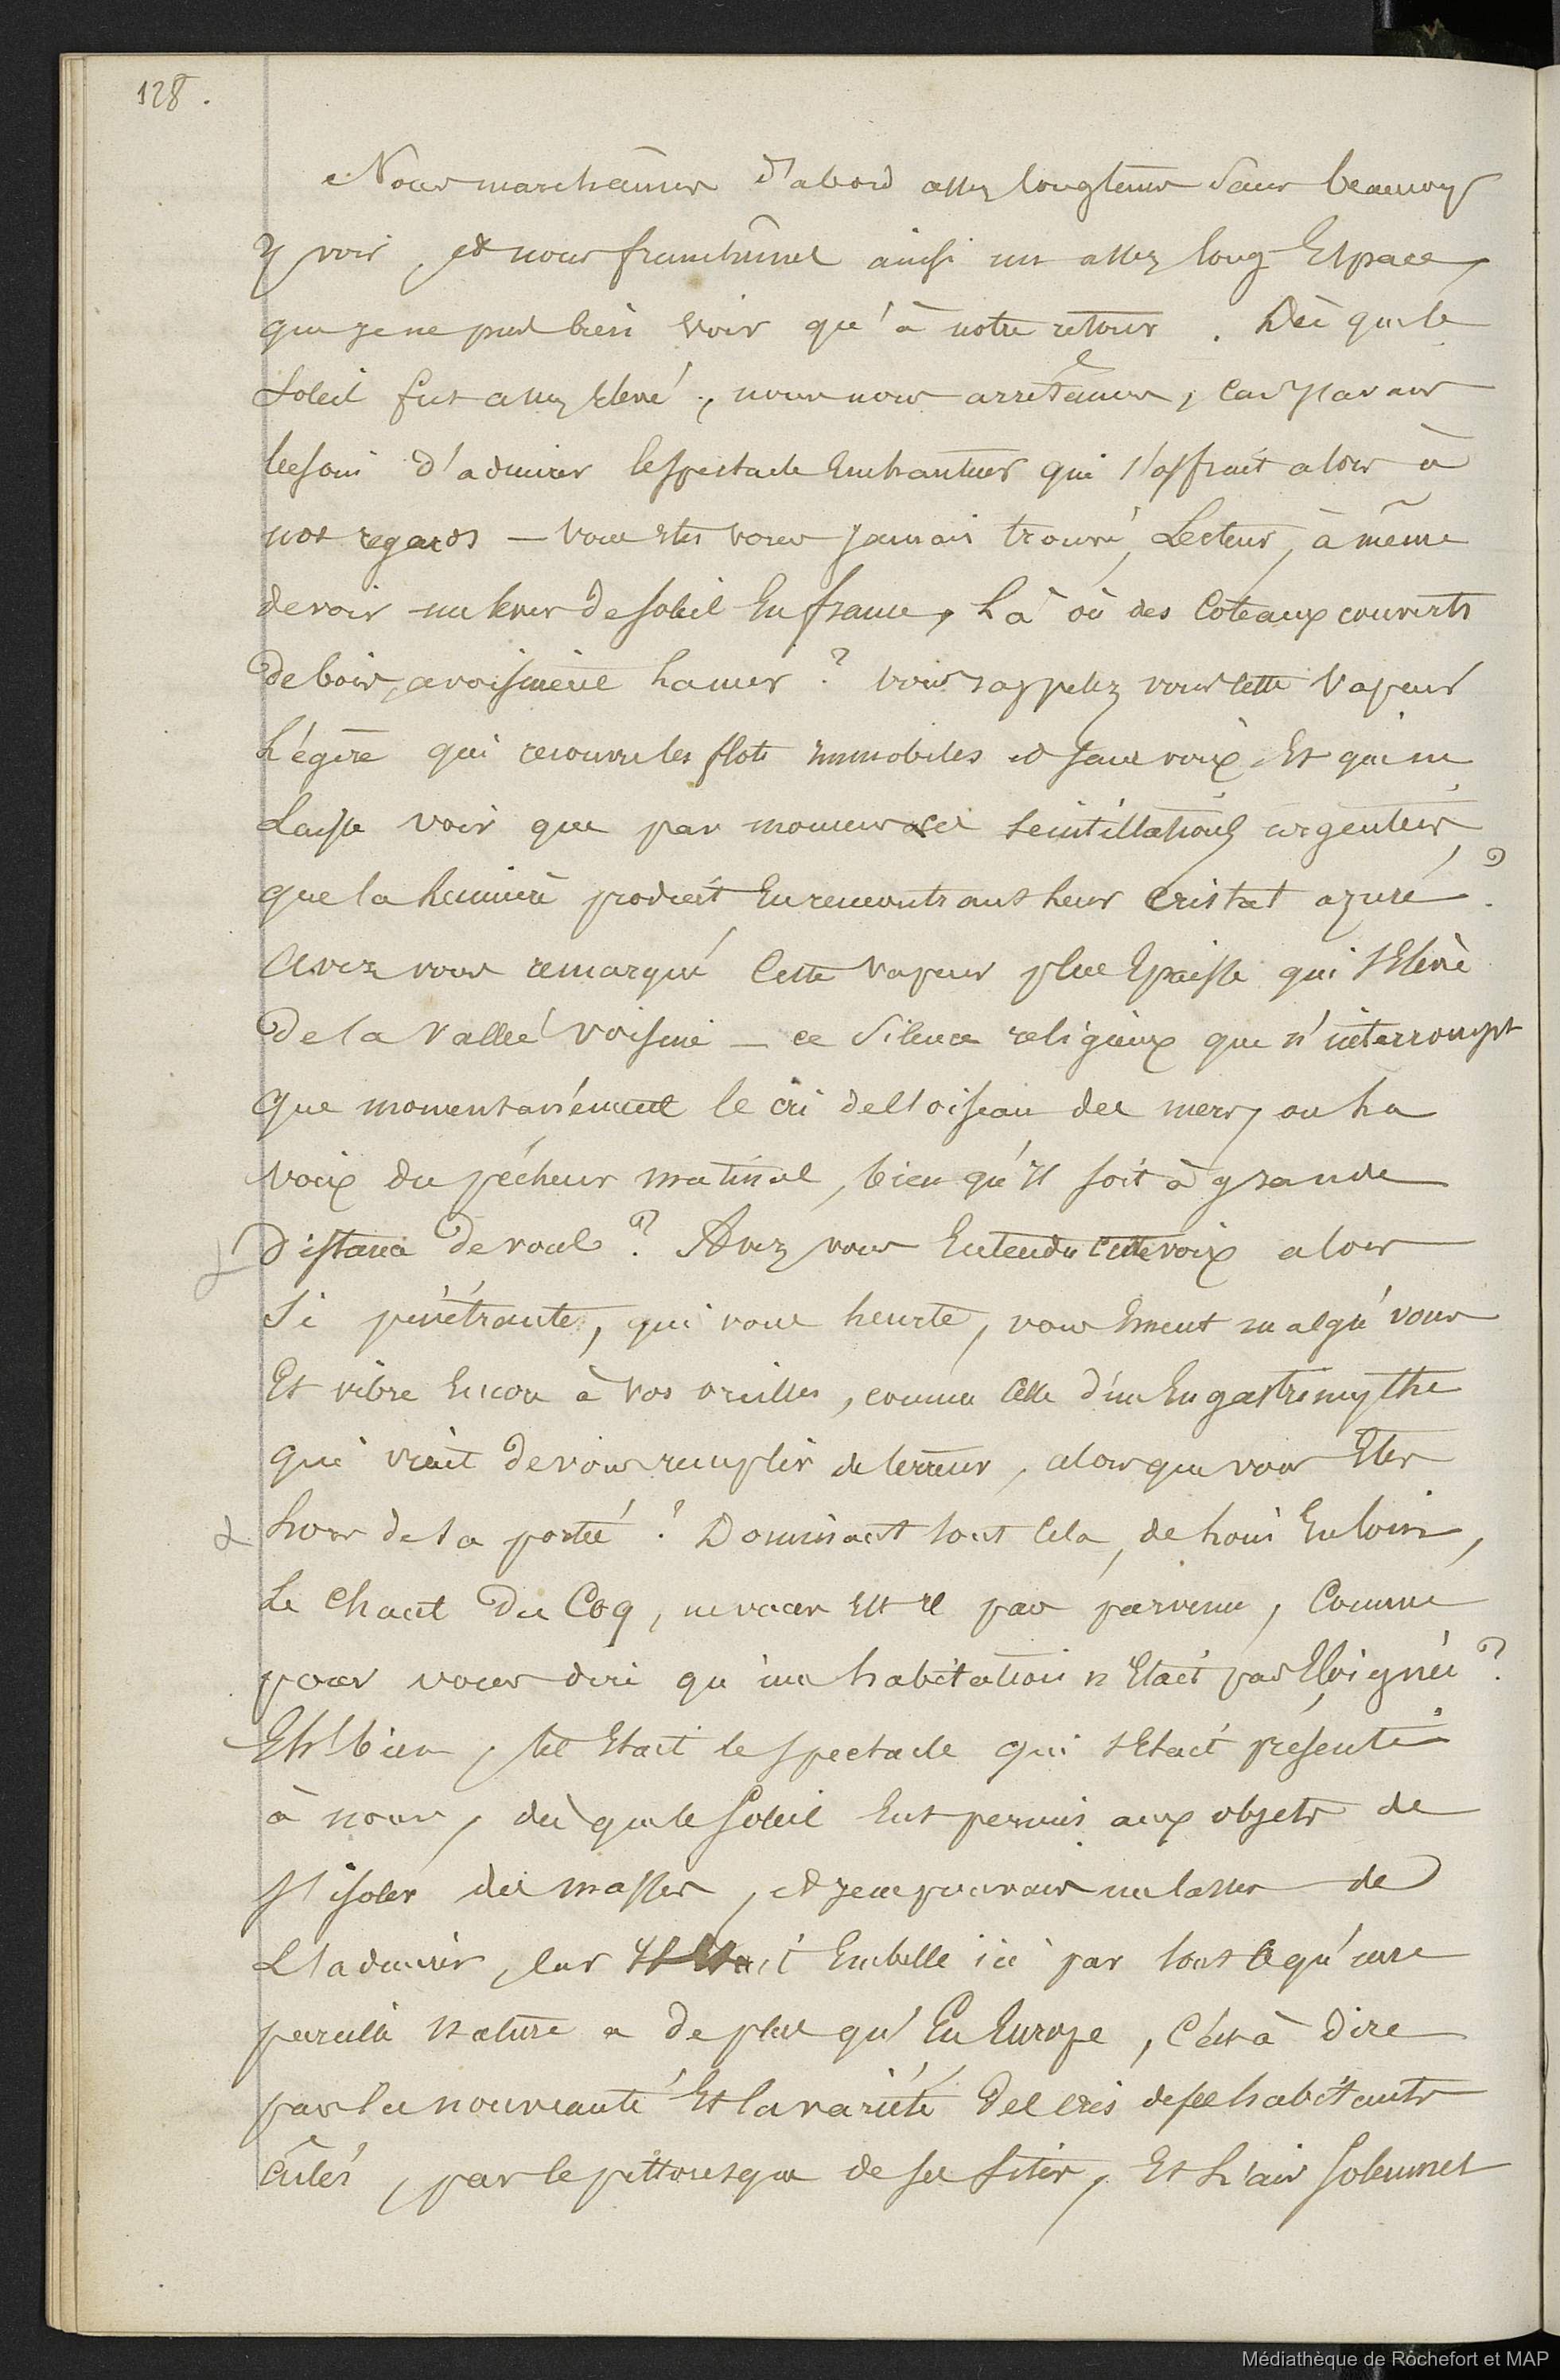 128.
Nous marchâmes d'abord assez longtems sans beaucoup
y voir, et nous franchîmes ainsi un assez long Espace,
que je ne pus bien voir qu'à notre retour. Dès que le
Soleil fut assez élevé, nous nous arrêtâmes, car j'avais
besoin d'admirer le spectacle Enchanteur qui s'offrait alors à
nos regards — vous êtes vous jamais trouvé, Lecteur, à même
de voir un lever de soleil En france, Là où des Coteaux couverts
de bois, avoisinent la mer ? vous rappelez vous cette Vapeur
Légère qui recouvre les flots immobiles et sans voix, Et qui ne
Laisse voir que par momens des scintillations argentées
que la Lumière produit En rencontrant leur Cristal azuré ?
Avez vous remarqué Cette vapeur plus Epaisse qui s'Elève
de la Vallée voisine — ce Silence religieux que n'interrompt
que momentanément le cri de l'oiseau des mers, ou La
voix du pécheur matinal, bien qu'il soit à grande
Distance de vous ? Avez vous Entendu Cette voix alors
Si pénétrante, qui vous heurte, vous Emeut malgré vous
Et vibre Encore à vos oreilles, comme Celle d'un Engastrimythe
qui vient de vous remplir de terreur, alors que vous Etes
hors de sa portée ? Dominant tout Cela, de Loin En Loin,
Le Chant du Coq, ne vous Est il pas parvenu, Comme
pour vous dire qu'une habitation n'Etait pas Eloignée ?
Eh ! bien, tel Etait le spectacle qui s'Etait présenté
à nous, dès que le Soleil Eut permis aux objets de
s'isoler des masses, et je ne pouvais me lasser de
L'admirer, car Il Etait Embelli ici par tout ce qu'une
pareille nature a de plus qu'En Europe, C'est à dire
par la nouveauté Et la variété des cris de ses habitants
aîlés, par le pittoresque de ses sites, Et L'air Solennel
Médiathèque de Rochefort et MAP